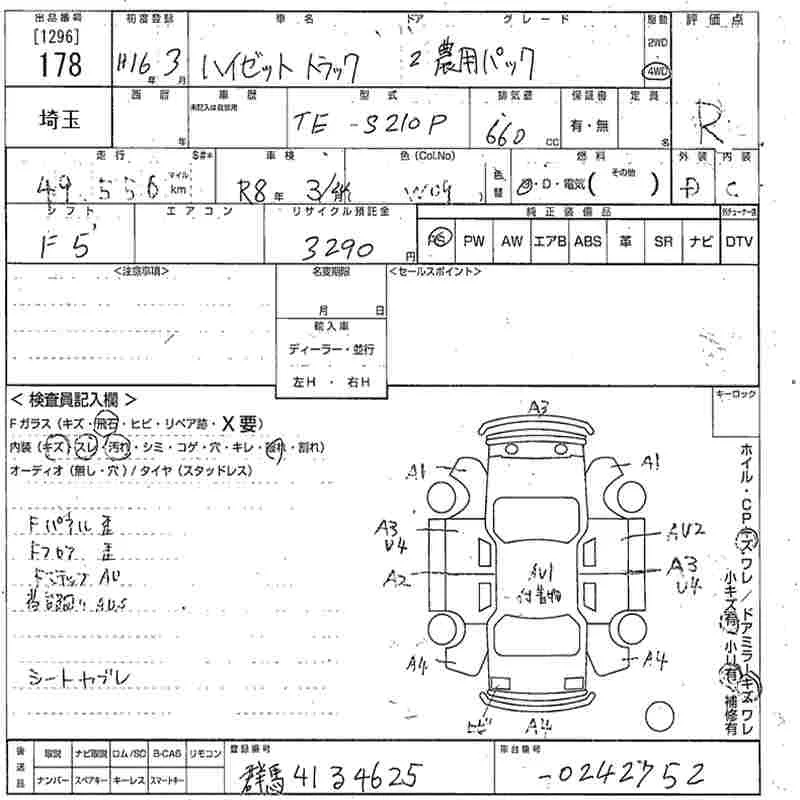 出品番号 初度登録 車名 ドア グレード 駆動 評価点
[1296] 178 H16年 3月 ハイゼット トラック 2 農用パック 2WD 4WD R
埼玉 西暦 年 車歴 未記入は自家用 型式 TE-S210P 排気量 660 CC 保証書 有・無 定員 名
走行 49,556 マイル km S#* 車検 R8年 3月 色(Col.No) W09 色替 燃料 ・D・電気( その他 ) 外装 D 内装 C
シフト F5 エアコン リサイクル預託金 3290円 純正装備品 PS PW AW エアB ABS 革 SR ナビ DTV
<注意事項> 名変期限 月 日 <セールスポイント>
輸入車
ディーラー・並行
左H ・ 右H
キーロック
< 検査員記入欄 >
Fガラス (キズ・飛石・ヒビ・リペア跡・X要)
内装 (キズ・スレ・汚れ・シミ・コゲ・穴・キレ・破れ・割れ)
オーディオ (無し・穴) / タイヤ (スタッドレス)
Fパネル 歪
Fフロア 歪
シートヤブレ
A3
A1 A1
A3 U4 AU2
A2 AU1 付着物 A3 U4
A4 A4
ヒビ A4
ホイル・CPキズ・ワレ/ドアミラーキズ・ワレ
小キズ有・小U有・補修有
後送品 取説 ナビ取説 ロム/SD B-CAS リモコン 登録番号 車台番号
ナンバー スペアキー キーレス スマートキー 群馬 41 3 4625 -0242752